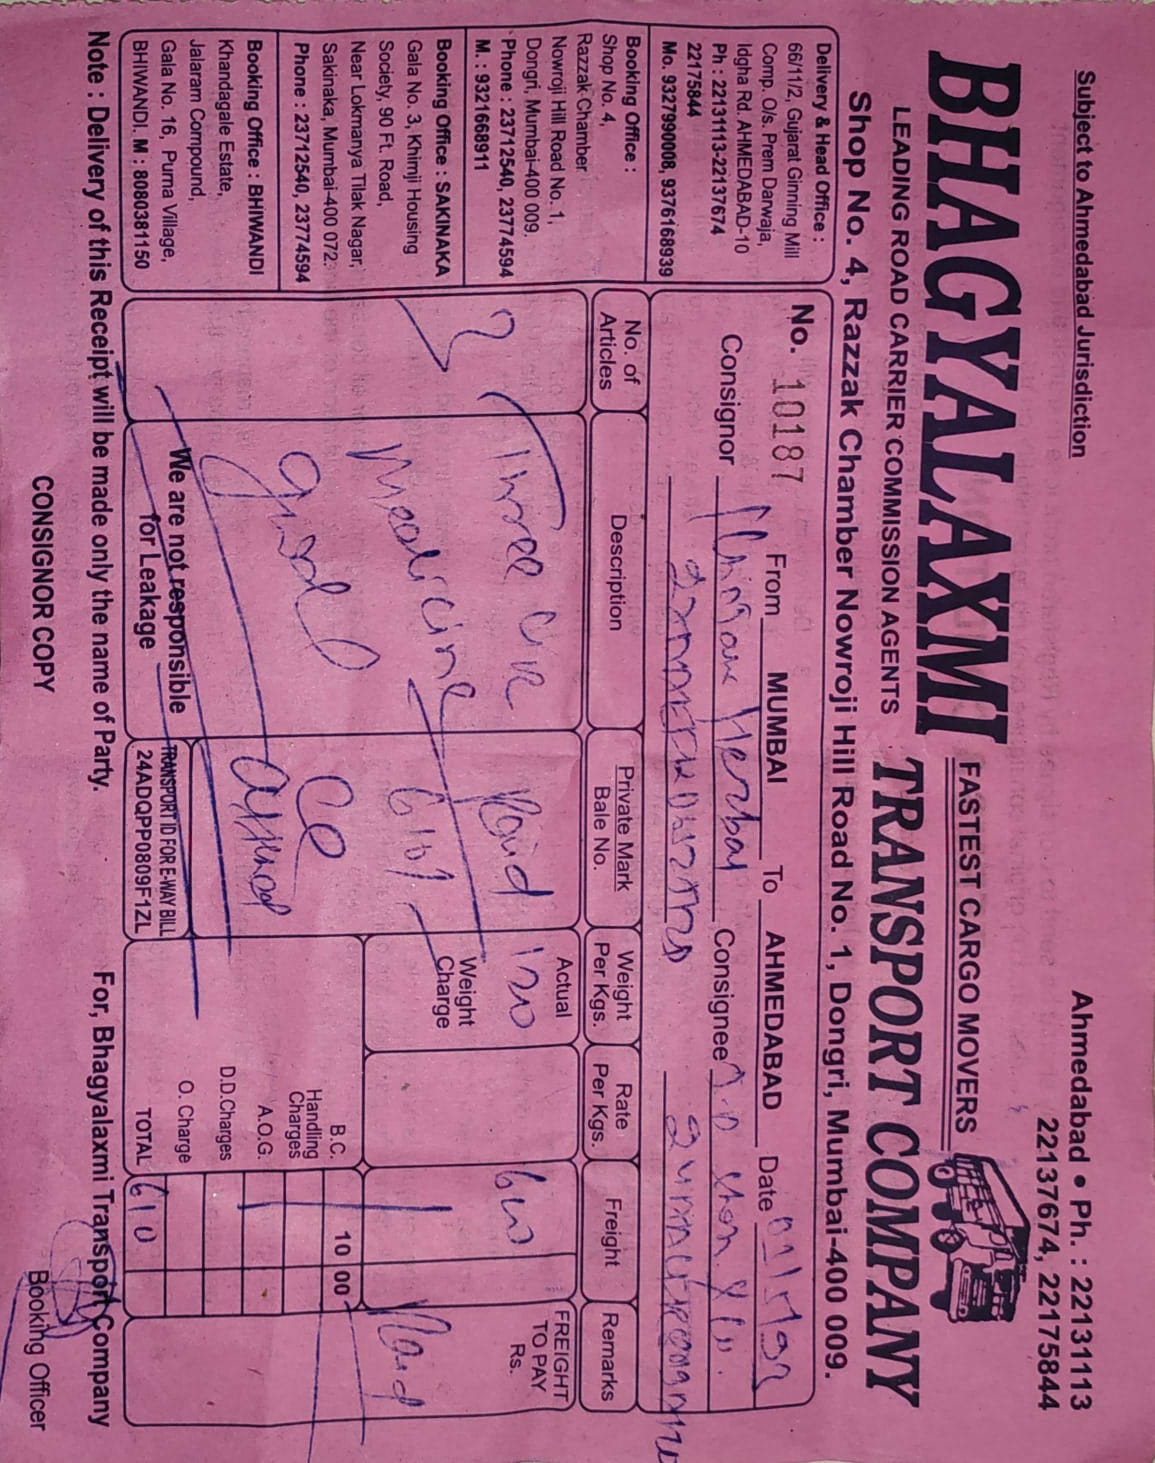 Subject to Ahmedabad Jurisdiction
Ahmedabad • Ph. : 22131113
22137674, 22175844
BHAGYALAXMI
FASTEST CARGO MOVERS
TRANSPORT COMPANY
LEADING ROAD CARRIER COMMISSION AGENTS
Shop No. 4, Razzak Chamber Nowroji Hill Road No. 1, Dongri, Mumbai-400 009.
Delivery & Head Office :
66/11/2, Gujarat Ginning Mill
Comp. O/s. Prem Darwaja,
Idgha Rd. AHMEDABAD-10
Ph : 22131113-22137674
22175844
Mo. 9327990008, 9376168939
Booking Office :
Shop No. 4,
Razzak Chamber
Nowroji Hill Road No. 1,
Dongri, Mumbai-400 009.
Phone : 23712540, 23774594
M. : 9321668911
Booking Office : SAKINAKA
Gala No. 3, Khimji Housing
Society, 90 Ft. Road,
Near Lokmanya Tilak Nagar,
Sakinaka, Mumbai-400 072.
Phone : 23712540, 23774594
Booking Office : BHIWANDI
Khandagale Estate,
Jalaram Compound,
Gala No. 16, Purna Village,
BHIWANDI. M : 8080381150
No. 10187 From MUMBAI To AHMEDABAD Date
Consignor Herbal Consignee
No. of Articles Description Private Mark Bale No. Weight Per Kgs. Rate Per Kgs. Freight Remarks
Three Paid
Medicine
Actual
Weight Charge
FREIGHT TO PAY Rs.
Paid
B.C. 10 00
Handling Charges
A.O.G.
D.D.Charges
O. Charge
TOTAL 610
We are not responsible
for Leakage
TRANSPORT ID FOR E-WAY BILL
24ADQPP0809F1ZL
Note : Delivery of this Receipt will be made only the name of Party.
For, Bhagyalaxmi Transport Company
CONSIGNOR COPY
Booking Officer